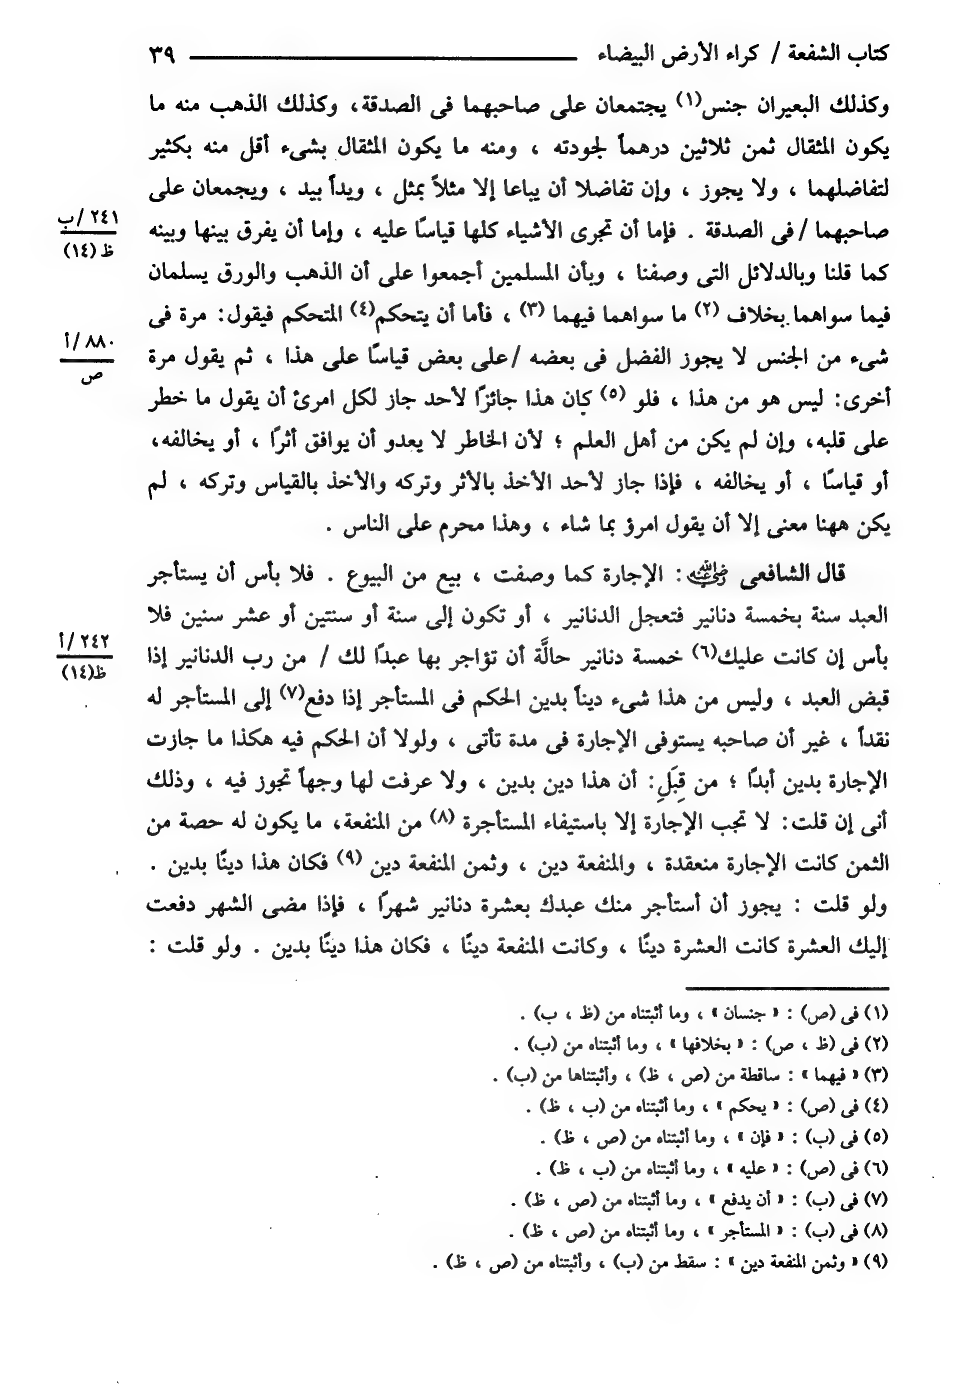 كتاب الشفعة / كراء الأرض البيضاء ٣٩
وكذلك البعيران جنس(١) يجتمعان على صاحبهما فى الصدقة، وكذلك الذهب منه ما
يكون المثقال ثمن ثلاثين درهماً لجودته ، ومنه ما يكون المثقال بشىء أقل منه بكثير
لتفاضلهما ، ولا يجوز ، وإن تفاضلا أن يباعا إلا مثلاً بمثل ، ويداً بيد ، ويجمعان على
صاحبهما / فى الصدقة . فإما أن تجرى الأشياء كلها قياسًا عليه ، وإما أن يفرق بينها وبينه
٢٤١ /ب
ظ (١٤)
كما قلنا وبالدلائل التى وصفنا ، وبأن المسلمين أجمعوا على أن الذهب والورق يسلمان
فيما سواهما بخلاف (٢) ما سواهما فيهما (٣) ، فأما أن يتحكم(٤) المتحكم فيقول: مرة فى
شىء من الجنس لا يجوز الفضل فى بعضه /على بعض قياسًا على هذا ، ثم يقول مرة
٨٨٠ /أ
ص
أخرى: ليس هو من هذا ، فلو (٥) كان هذا جائزًا لأحد جاز لكل امرئ أن يقول ما خطر
على قلبه، وإن لم يكن من أهل العلم ؛ لأن الخاطر لا يعدو أن يوافق أثرًا ، أو يخالفه،
أو قياسًا ، أو يخالفه ، فإذا جاز لأحد الأخذ بالأثر وتركه والأخذ بالقياس وتركه ، لم
يكن ههنا معنى إلا أن يقول امرؤ بما شاء ، وهذا محرم على الناس .
قال الشافعى رضي الله عنه : الإجارة كما وصفت ، بيع من البيوع . فلا بأس أن يستأجر
العبد سنة بخمسة دنانير فتعجل الدنانير ، أو تكون إلى سنة أو سنتين أو عشر سنين فلا
بأس إن كانت عليك(٦) خمسة دنانير حالَّة أن تؤاجر بها عبدًا لك / من رب الدنانير إذا
٢٤٢ /أ
ظ(١٤)
قبض العبد ، وليس من هذا شىء ديناً بدين الحكم فى المستأجر إذا دفع(٧) إلى المستأجر له
نقداً ، غير أن صاحبه يستوفى الإجارة فى مدة تأتى ، ولولا أن الحكم فيه هكذا ما جازت
الإجارة بدين أبدًا ؛ من قِبَلِ: أن هذا دين بدين ، ولا عرفت لها وجهاً تجوز فيه ، وذلك
أنى إن قلت: لا تجب الإجارة إلا باستيفاء المستأجرة (٨) من المنفعة، ما يكون له حصة من
الثمن كانت الإجارة منعقدة ، والمنفعة دين ، وثمن المنفعة دين (٩) فكان هذا دينًا بدين .
ولو قلت : يجوز أن أستأجر منك عبدك بعشرة دنانير شهرًا ، فإذا مضى الشهر دفعت
إليك العشرة كانت العشرة دينًا ، وكانت المنفعة دينًا ، فكان هذا دينًا بدين . ولو قلت :
(١) فى (ص) : « جنسان » ، وما أثبتناه من (ظ ، ب) .
(٢) فى (ظ ، ص) : « بخلافها » ، وما أثبتناه من (ب) .
(٣) « فيهما » : ساقطة من (ص ، ظ) ، وأثبتناها من (ب) .
(٤) فى (ص) : « يحكم » ، وما أثبتناه من (ب ، ظ) .
(٥) فى (ب) : « فإن » ، وما أثبتناه من (ص ، ظ) .
(٦) فى (ص) : « عليه » ، وما أثبتناه من (ب ، ظ) .
(٧) فى (ب) : « أن يدفع » ، وما أثبتناه من (ص ، ظ) .
(٨) فى (ب) : « المستأجر » ، وما أثبتناه من (ص ، ظ) .
(٩) « وثمن المنفعة دين » : سقط من (ب) ، وأثبتناه من (ص ، ظ) .